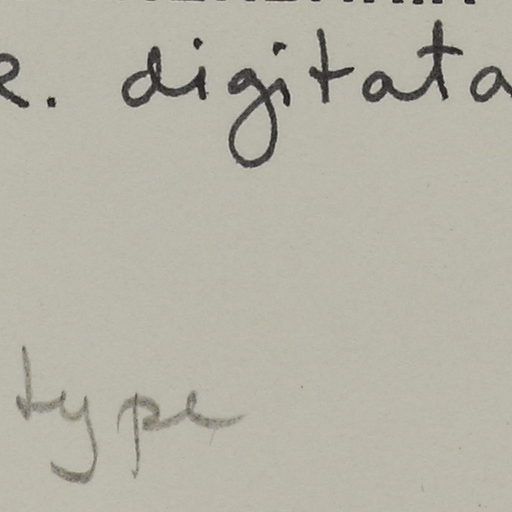 digitata
type